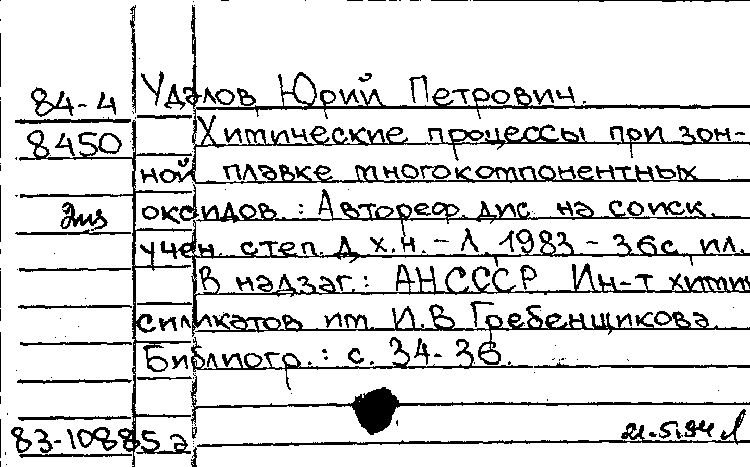 84-4 Удалов, Юрий Петрович.
8450 Химические процессы при зон-
ной плавке многокомпонентных
экз оксидов. : Автореф. дис. на соиск.
учен. степ. д.х.н. - Л., 1983 - 36с, ил.
В надзаг.: АН СССР. Ин-т хими
силикатов им. И.В. Гребенщикова.
Библиогр.: с. 34-36.
83-10885а 21.5.84